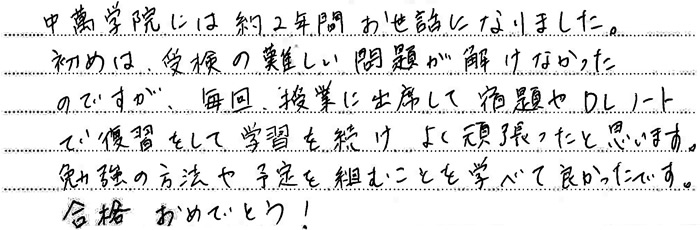 中萬学院には約2年間お世話になりました。
初めは、受検の難しい問題が解けなかった
のですが、毎回、授業に出席して宿題やDLノート
で復習をして学習を続けよく頑張ったと思います。
勉強の方法や予定を組むことを学べて良かったです。
合格おめでとう!